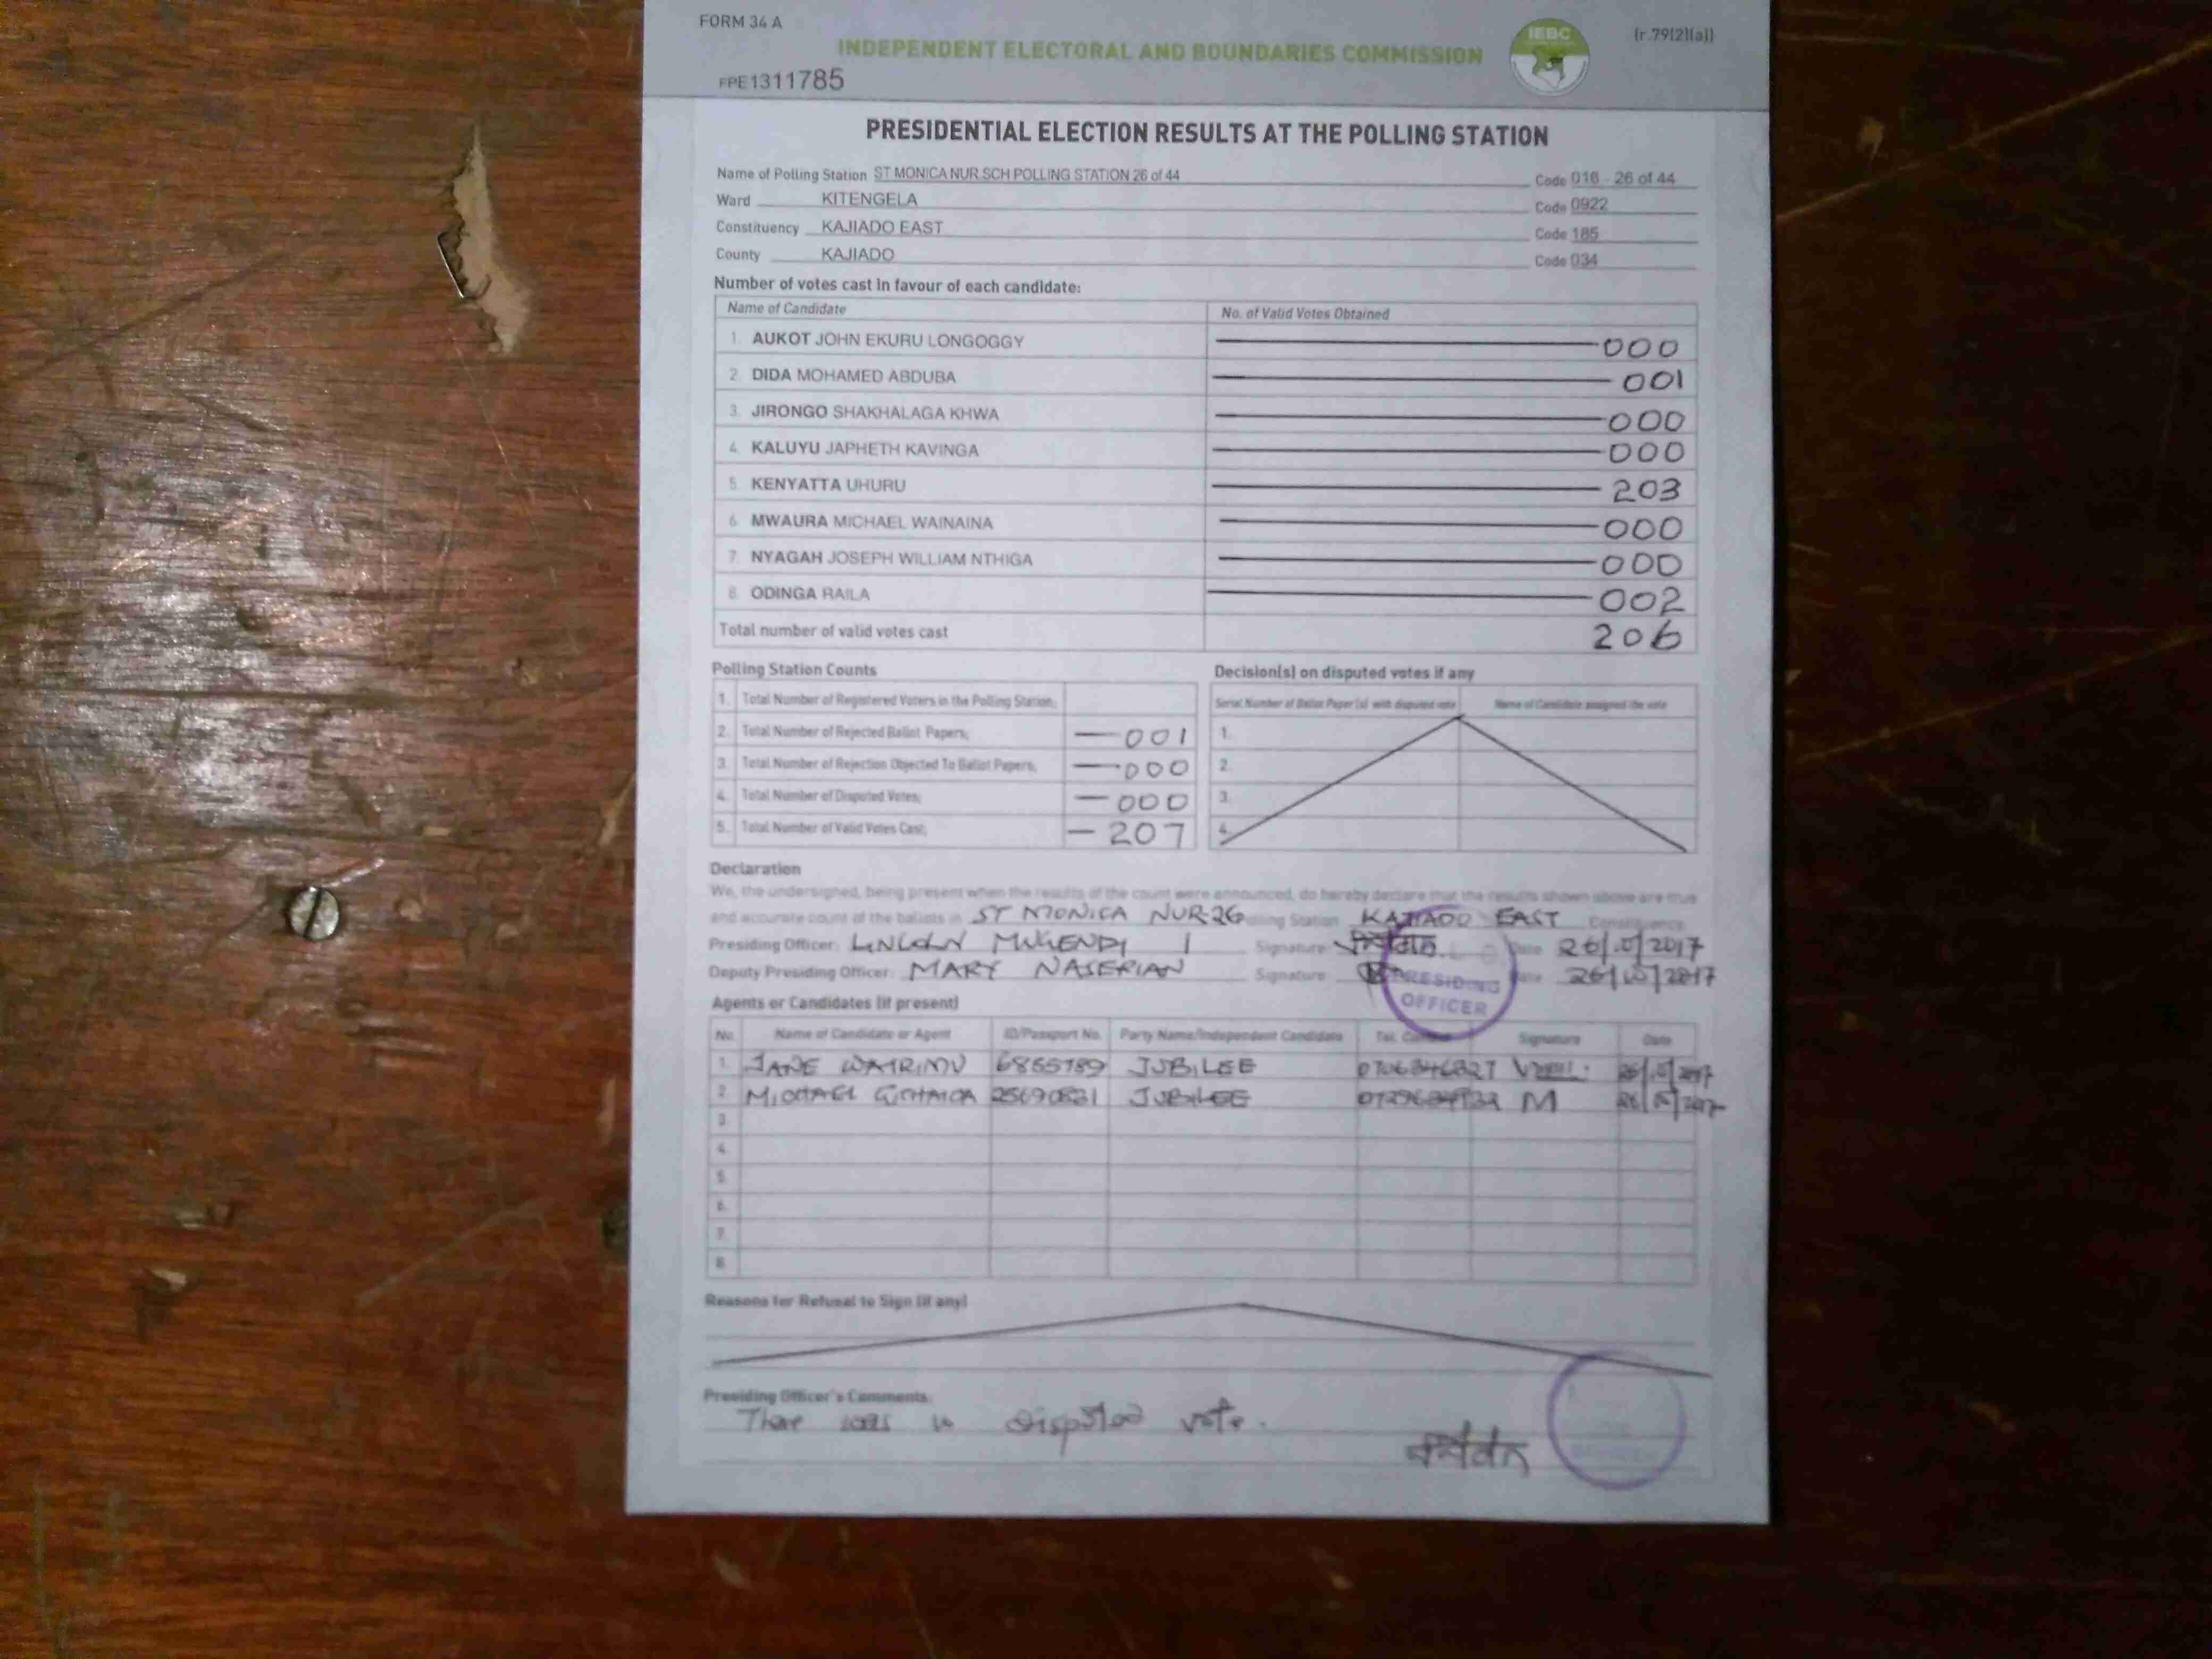 FORM 34 A
INDEPENDENT ELECTORAL AND BOUNDARIES COMMISSION
IEBC
(r.79(2)(a))
FPE1311785
PRESIDENTIAL ELECTION RESULTS AT THE POLLING STATION
Name of Polling Station ST MONICA NUR SCH POLLING STATION 26 of 44 Code 016 - 26 of 44
Ward KITENGELA Code 0922
Constituency KAJIADO EAST Code 185
County KAJIADO Code 034
Number of votes cast in favour of each candidate:
Name of Candidate No. of Valid Votes Obtained
1. AUKOT JOHN EKURU LONGOGGY 000
2. DIDA MOHAMED ABDUBA 001
3. JIRONGO SHAKHALAGA KHWA 000
4. KALUYU JAPHETH KAVINGA 000
5. KENYATTA UHURU 203
6. MWAURA MICHAEL WAINAINA 000
7. NYAGAH JOSEPH WILLIAM NTHIGA 000
8. ODINGA RAILA 002
Total number of valid votes cast 206
Polling Station Counts
1. Total Number of Registered Voters in the Polling Station;
2. Total Number of Rejected Ballot Papers; — 001
3. Total Number of Rejection Objected To Ballot Papers; — 000
4. Total Number of Disputed Votes; — 000
5. Total Number of Valid Votes Cast; — 207
Decision(s) on disputed votes if any
Serial Number of Ballot Paper(s) with disputed vote Name of Candidate assigned the vote
1.
2.
3.
4.
Declaration
We, the undersigned, being present when the results of the count were announced, do hereby declare that the results shown above are true
and accurate count of the ballots in ST MONICA NUR 26 Polling Station KAJIADO EAST Constituency
Presiding Officer: Signature Date 26/10/2017
Deputy Presiding Officer: MARY NASERIAN Signature Date 26/10/2017
PRESIDING
OFFICER
Agents or Candidates (if present)
No. Name of Candidate or Agent ID/Passport No. Party Name/Independent Candidate Tel. Contact Signature Date
1. JANE WAIRIMU JUBILEE 26/10/2017
2. MICHAEL JUBILEE M 26/10/2017
3.
4.
5.
6.
7.
8.
Reasons for Refusal to Sign (if any)
Presiding Officer's Comments:
There was no disputed vote.